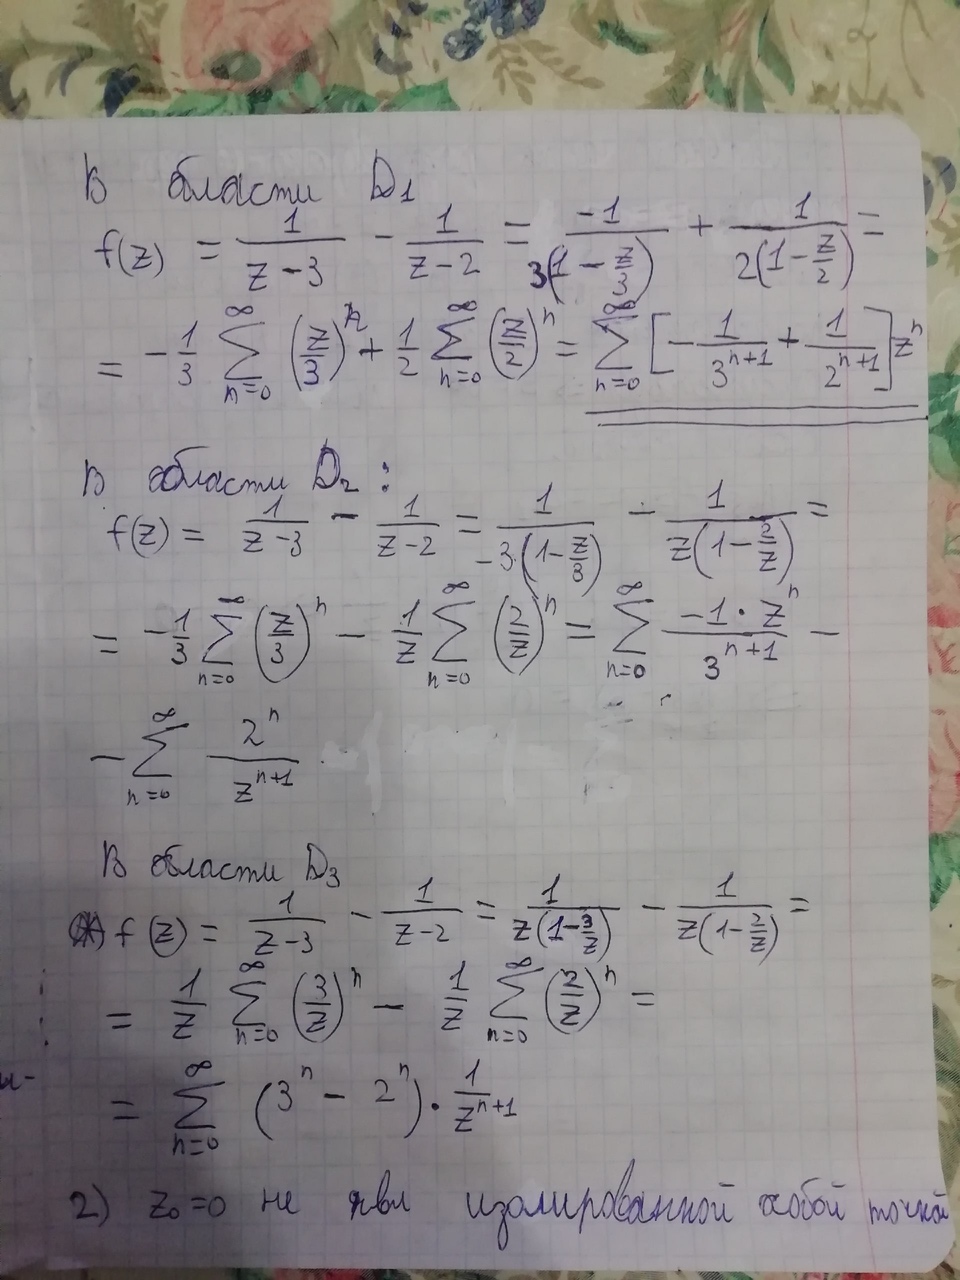 В области D₁
f(z) = 1/(z-3) - 1/(z-2) = -1/(3(1 - z/3)) + 1/(2(1 - z/2)) =
= -1/3 ∑_{n=0}^{∞} (z/3)^n + 1/2 ∑_{n=0}^{∞} (z/2)^n = ∑_{n=0}^{∞} [-1/3^{n+1} + 1/2^{n+1}] z^n
В области D₂ :
f(z) = 1/(z-3) - 1/(z-2) = 1/(-3·(1 - z/3)) - 1/(z(1 - 2/z)) =
= -1/3 ∑_{n=0}^{∞} (z/3)^n - 1/z ∑_{n=0}^{∞} (2/z)^n = ∑_{n=0}^{∞} (-1·z^n)/3^{n+1} -
- ∑_{n=0}^{∞} 2^n/z^{n+1}
В области D₃
f(z) = 1/(z-3) - 1/(z-2) = 1/(z(1 - 3/z)) - 1/(z(1 - 2/z)) =
= 1/z ∑_{n=0}^{∞} (3/z)^n - 1/z ∑_{n=0}^{∞} (2/z)^n =
= ∑_{n=0}^{∞} (3^n - 2^n) · 1/z^{n+1}
2) z₀=0 не явл изолированной особой точкой